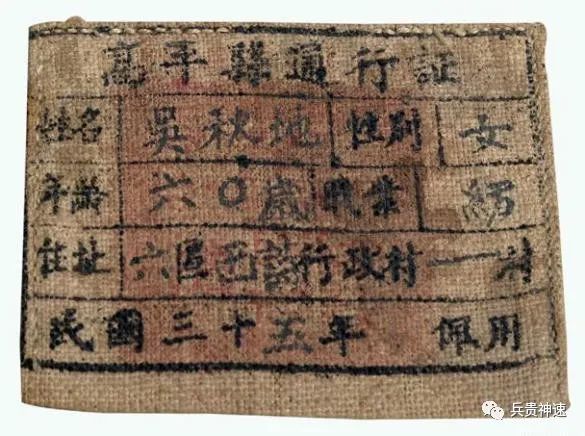 高平縣通行証
姓名 吳秋地 性别 女
年齡 六〇歲 職業
住址 六區西詩行政村——村
民國三十五年 佩用
兵贵神速